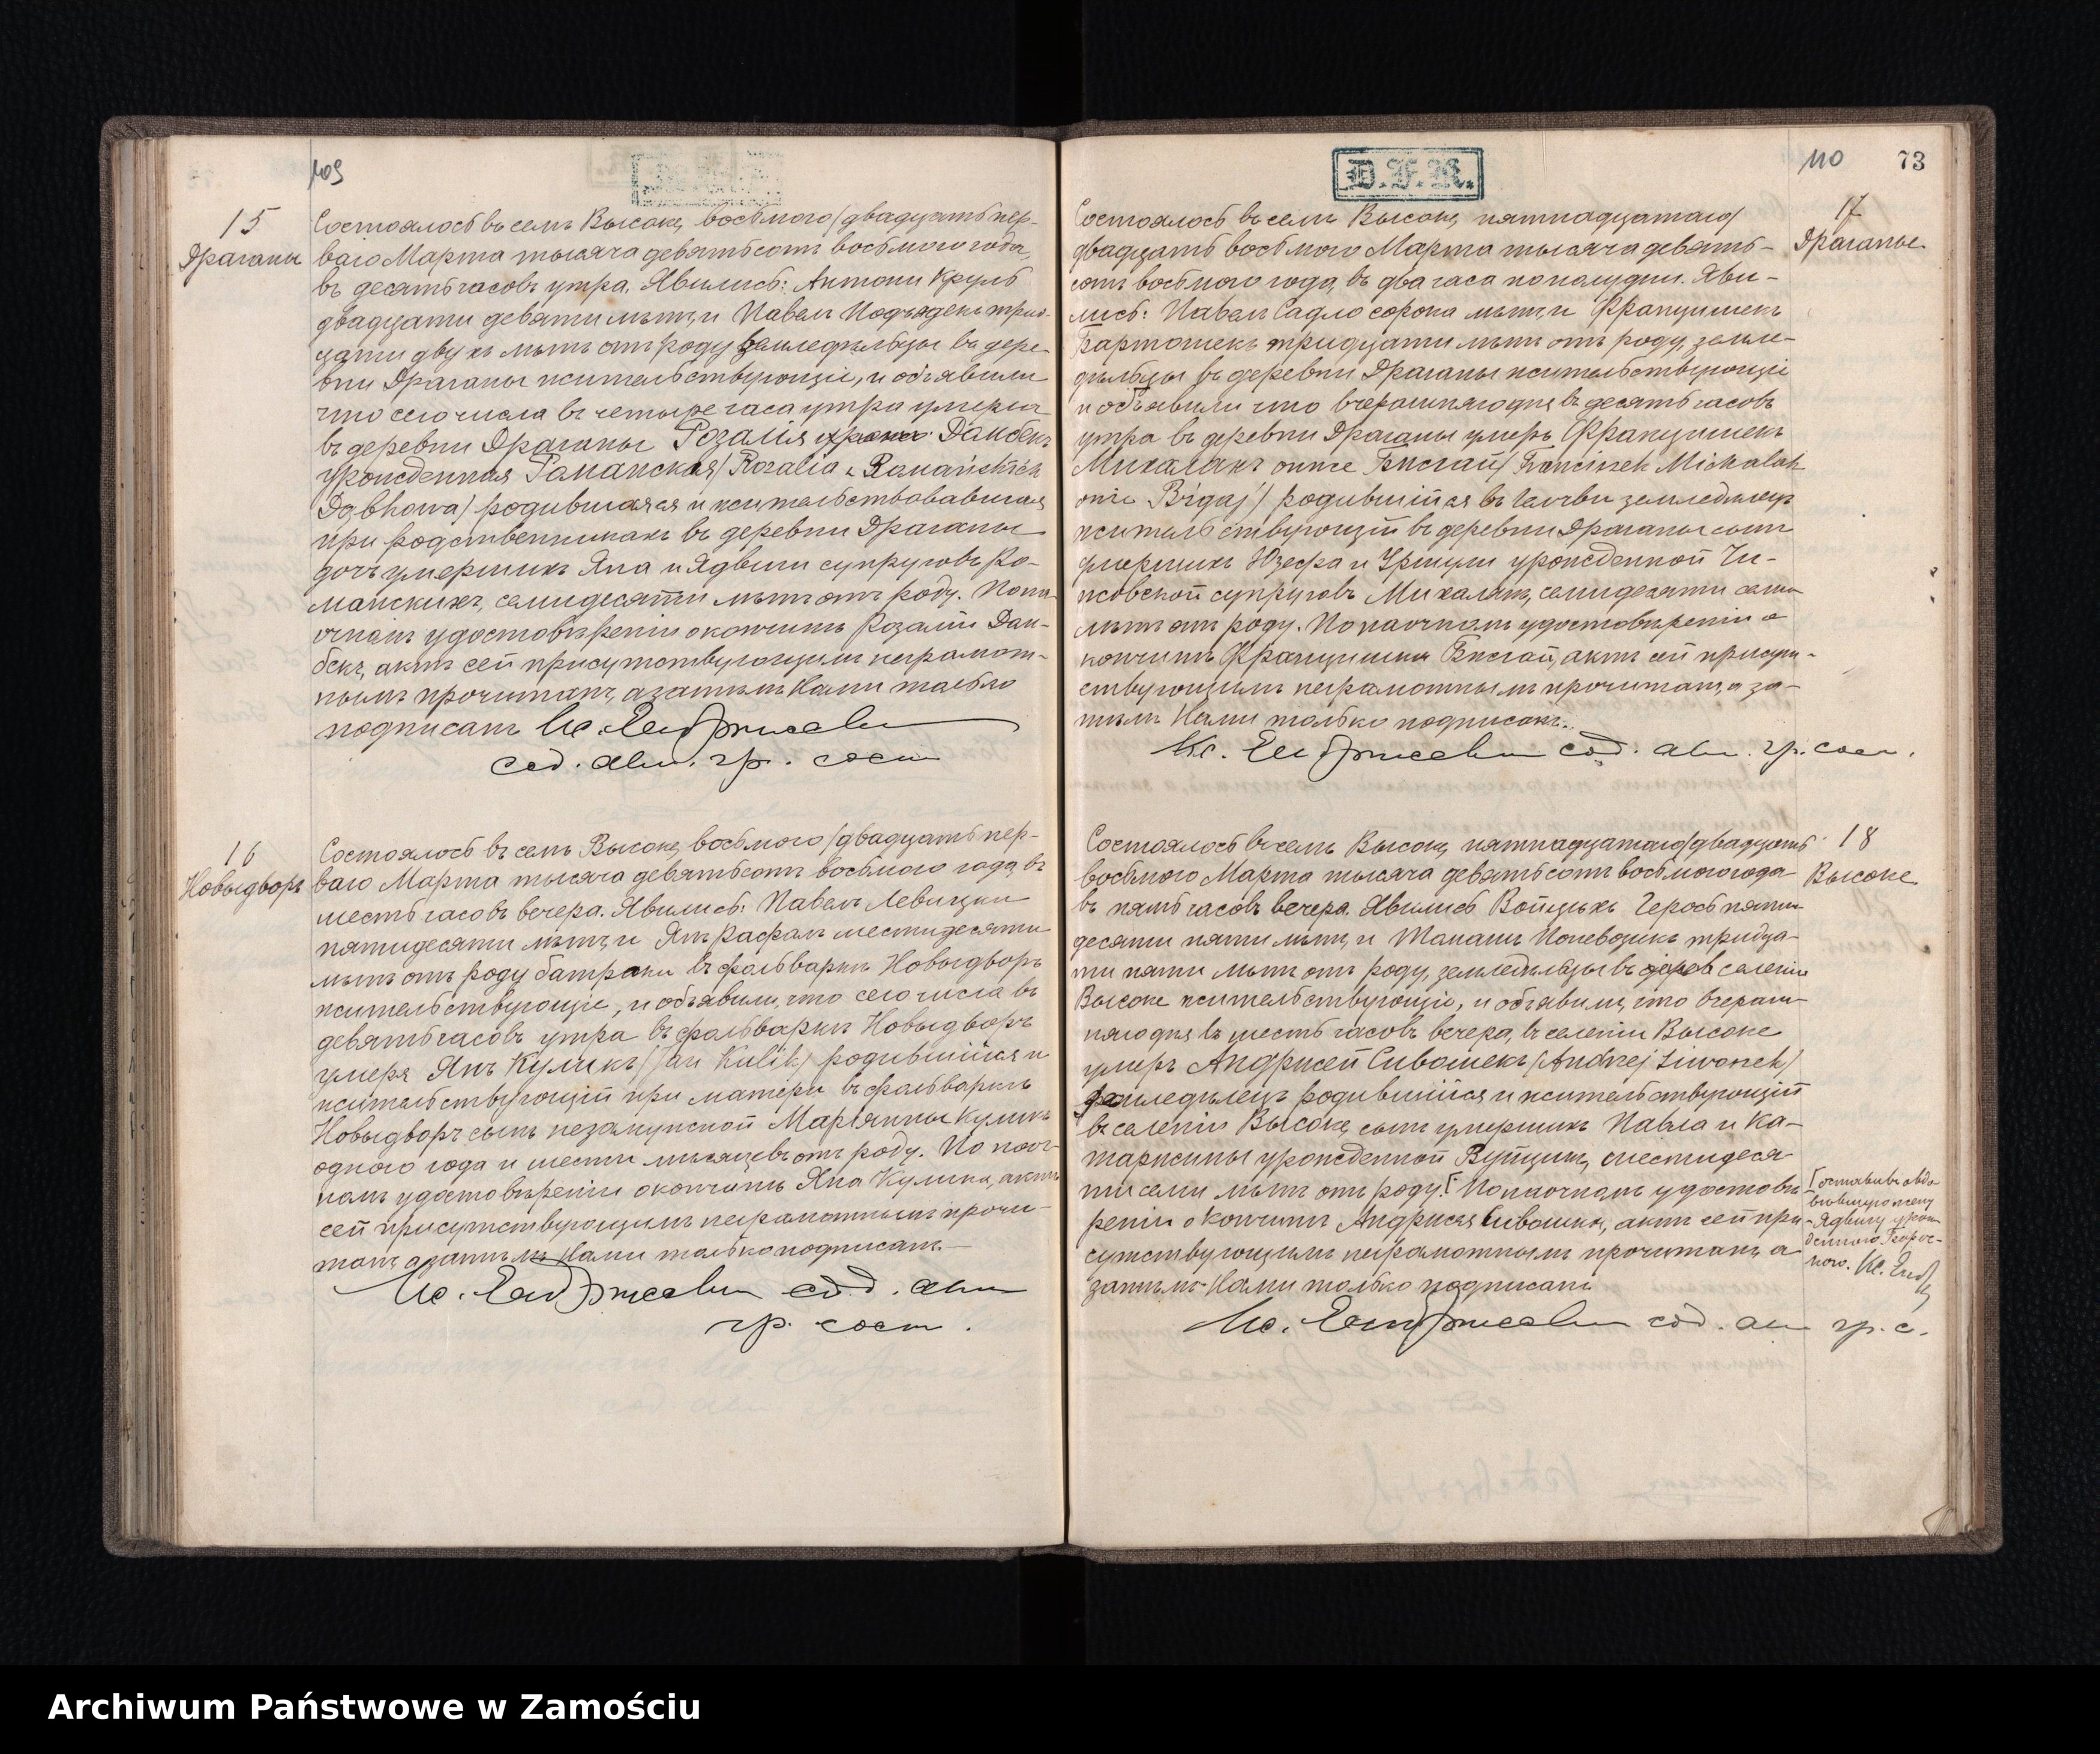 109
15
Драганы
Состоялось въ селѣ Высоке, восьмого/двадцать пер-
ваго Марта тысяча девятьсотъ восьмого года,
въ десять часовъ утра. Явились: Антони Круль
двадцати девяти лѣтъ, и Павелъ трид-
цати двухъ лѣтъ отъ роду земледѣльцы въ дере-
вни Драганы жительствующіе, и объявили
что сего числа въ четыре часа утра умерла
въ деревни Драганы Розалія Домбекъ
урожденная Романская/Rozalia z Romańskich
Dąbkowa/ родившаяся и жительствовавшая
при родственникахъ въ деревни Драганы
дочь умершихъ Яна и Ядвиги супруговъ Ро-
манскихъ, семидесяти лѣтъ отъ роду. По на-
очномъ удостовѣреніи о кончинѣ Розаліи Дом-
бекъ, актъ сей присутствующимъ неграмот-
нымъ прочитанъ, а затѣмъ Нами только
подписанъ Кс.
сод. акт. гр. сост
16
Новыдворъ
Состоялось въ селѣ Высоке, восьмого/двадцать пер-
ваго Марта тысяча девятьсотъ восьмого года, въ
шесть часовъ вечера. Явились: Павелъ Левицки
пятидесяти лѣтъ, и Янъ Рафалъ шестидесяти
лѣтъ отъ роду батраки въ фольваркѣ Новыдворъ
жительствующіе, и объявили, что сего числа въ
девять часовъ утра въ фольваркѣ Новыдворъ
умеръ Янъ Куликъ/Jan Kulik/ родившійся и
жительствующій при матери въ фольваркѣ
Новыдворъ сынъ незамужской Маріянны Куликъ
одного года и шести мѣсяцевъ отъ роду. По наоч-
номъ удостовѣреніи о кончинѣ Яна Кулика, актъ
сей присутствующимъ неграмотнымъ прочи-
танъ а затѣмъ Нами только подписанъ.
Кс. сод. акт
гр. сост.
D.F.R.
110
73
17
Драганы
Состоялось въ селѣ Высоке, пятнадцатаго/
двадцать восьмого Марта тысяча девять-
сотъ восьмого года, въ два часа пополудни. Яви-
лись: Павелъ Садло сорока лѣтъ, и Францишекъ
Бартошекъ тридцати лѣтъ отъ роду, земле-
дѣльцы въ деревни Драганы жительствующіе
и объявили что вчерашняго дня въ десять часовъ
утра въ деревни Драганы умеръ Францишекъ
Михалакъ онже Бжегай/Franciszek Michalak
onże Brigaj/ родившійся въ земледѣлецъ
жительствующій въ деревни Драганы сынъ
умершихъ Юзефа и Уршули урожденной Чи-
жовской супруговъ Михалякъ, семидесяти семи
лѣтъ отъ роду. По наочномъ удостовѣреніи о
кончинѣ Францишка Бжегай, актъ сей присут-
ствующимъ неграмотнымъ прочитанъ, а за-
тѣмъ Нами только подписанъ.
Кс. сод. акт. гр. сост.
18
Высоке
Состоялось въ селѣ Высоке, пятнадцатаго/двадцать
восьмого Марта тысяча девятьсотъ восьмого года
въ пять часовъ вечера. Явились Войцѣхъ пяти-
десяти пяти лѣтъ, и Томашъ тридца-
ти пяти лѣтъ отъ роду, земледѣльцы въ селеніи
Высоке жительствующіе, и объявили, что вчераш-
няго дня въ шесть часовъ вечера, въ селеніи Высоке
умеръ Андржей Сивошекъ/Andrzej Siwoszek/
земледѣлецъ родившійся и жительствующій
въ селеніи Высоке, сынъ умершихъ Павла и Ка-
таржины урожденной шестидеся-
ти семи лѣтъ отъ роду. По наочномъ удостовѣ-
реніи о кончинѣ Андржея Сивошка, актъ сей при-
сутствующимъ неграмотнымъ прочитанъ, а
затѣмъ Нами только подписанъ
оставивъ овдо-
вѣвшую жену
Ядвигу урож-
денную
Кс.
Кс. сод. акт гр. с.
Archiwum Państwowe w Zamościu